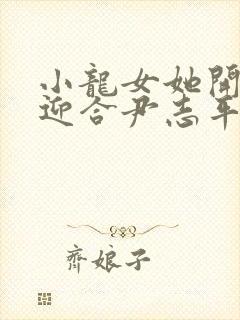 小龍女她開
迎合尹志平
齊娘子